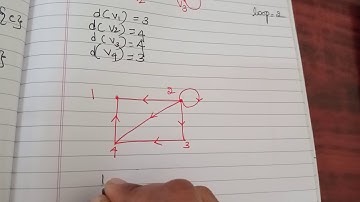 {e}
v3
loop=2
d(v1) = 3
d(v2) = 4
d(v3) = 4
d(v4) = 3
1
2
4
3